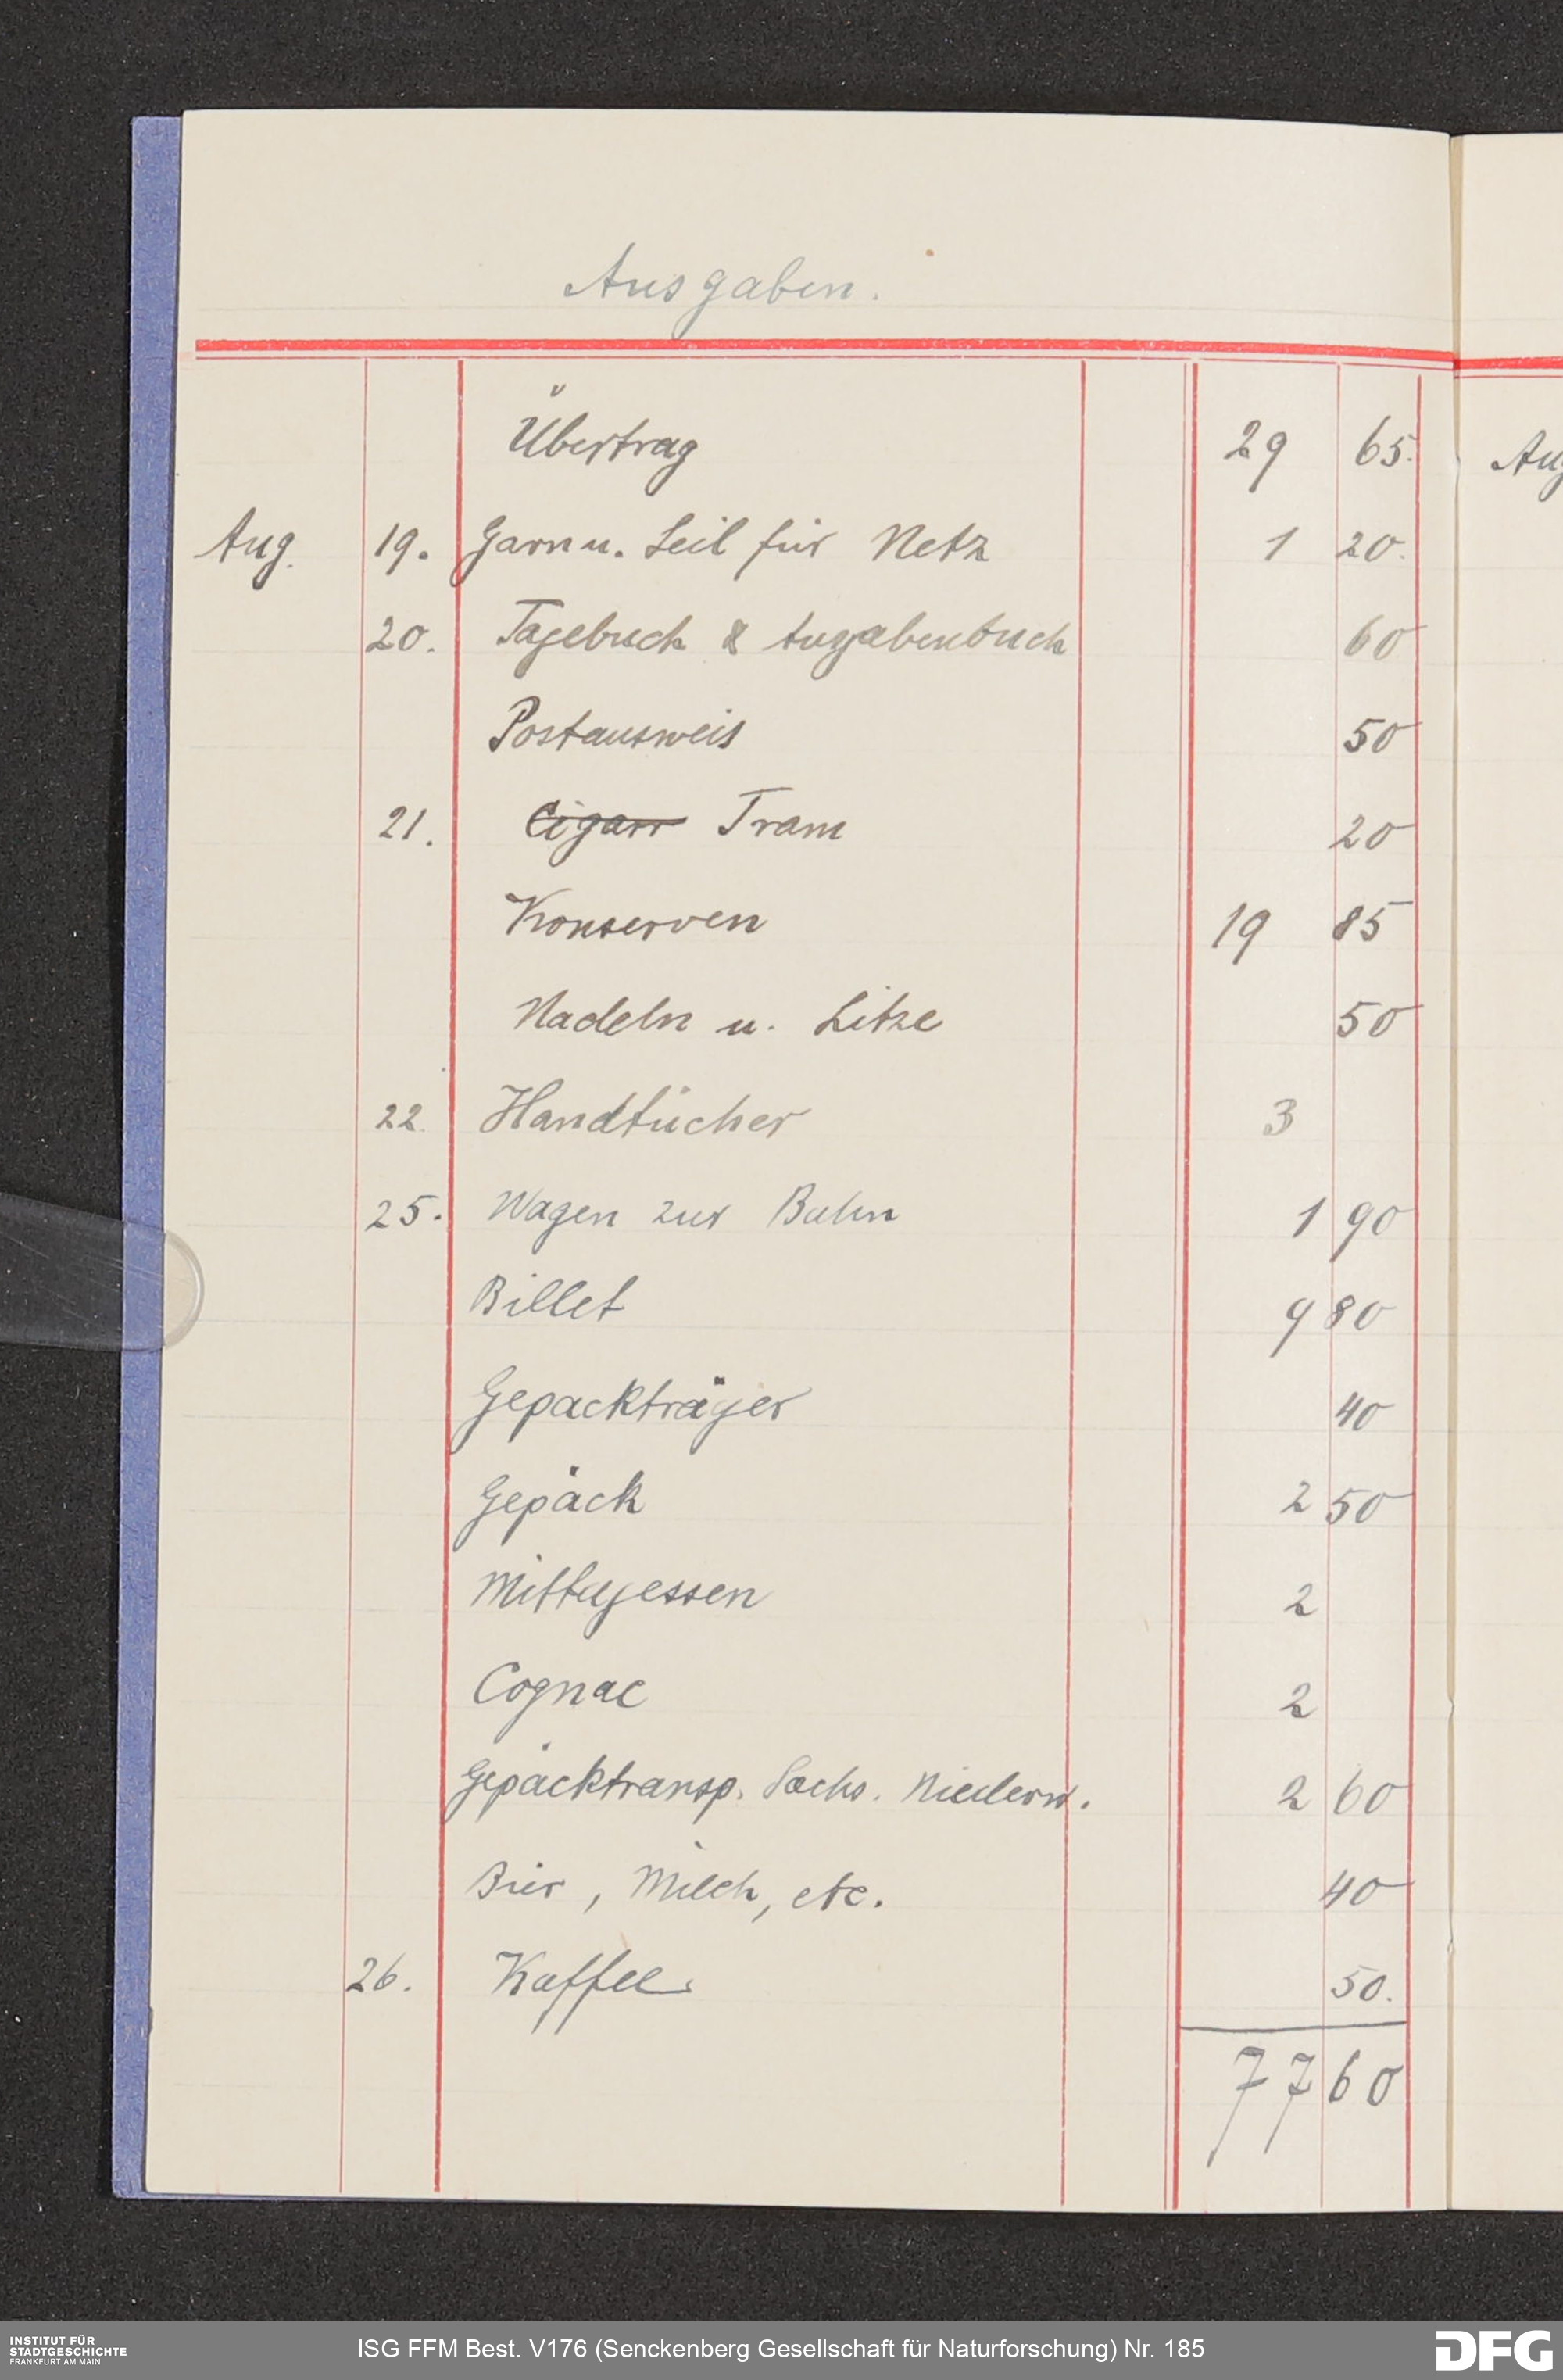 Ausgaben.
Übertrag 29 65.
Aug. 19. Garn u. Seil für Netz 1 20.
20. Tagebuch & Ausgabenbuch 60
Postausweis 50
21. Cigarr Tram 20
Konserven 19 85
Nadeln u. Litze 50
22. Handtücher 3
25. Wagen zur Bahn 1 90
Billet 9 80
Gepackträger 40
Gepäck 2 50
Mittagessen 2
Cognac 2
Gepäcktransp. Sachs. Niederw. 2 60
Bier, Milch, etc. 40
26. Kaffee 50.
77 60
Aug
INSTITUT FÜR
STADTGESCHICHTE
FRANKFURT AM MAIN
ISG FFM Best. V176 (Senckenberg Gesellschaft für Naturforschung) Nr. 185
DFG